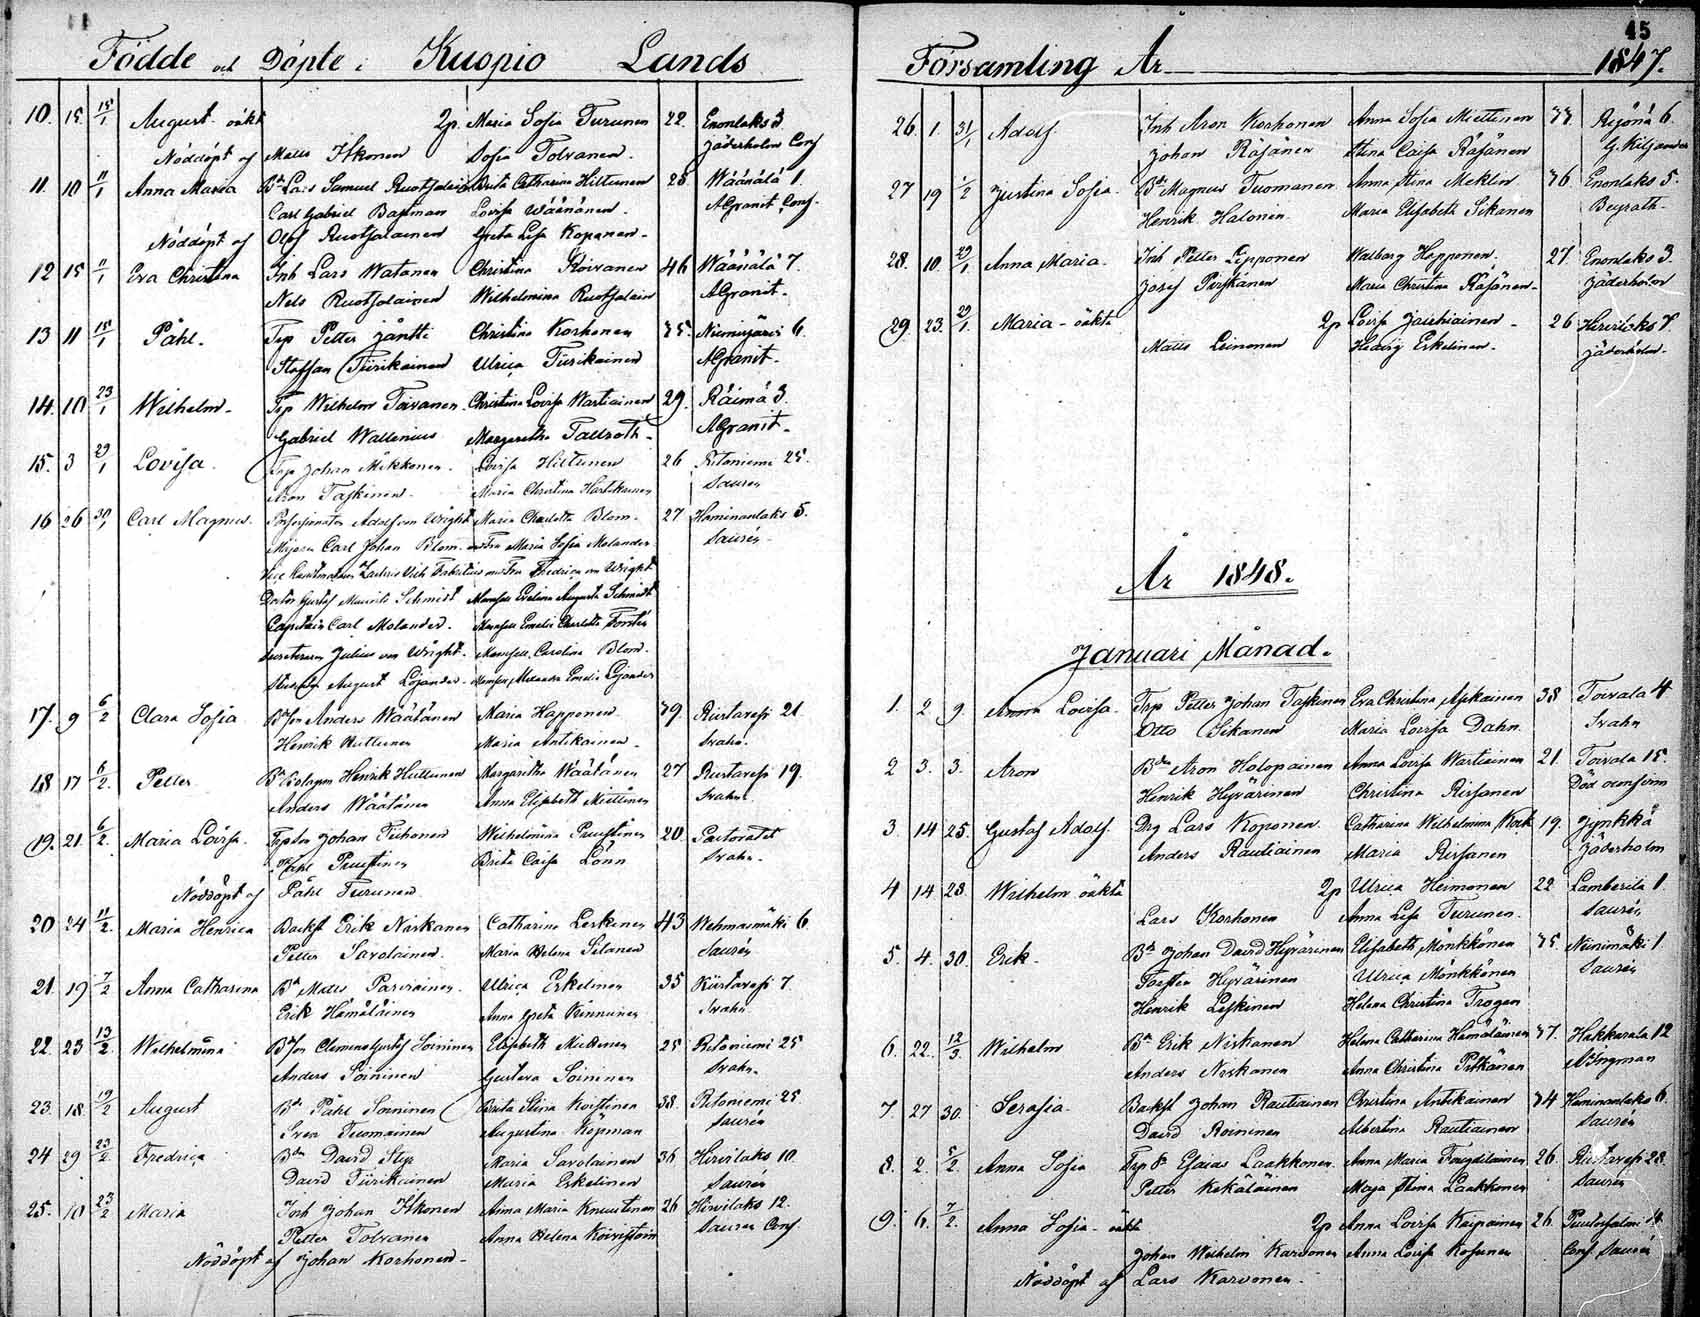 45
Födde och Döpte i Kuopio Lands
Församling År 1847.
10. 15. 15/1 August oäkt 2p. Maria Sofia Turunen 22. Enonlaks 3
Nöddöpt af Matts Itkonen Sofia Tolvanen. Jäderholm Conf
11. 10 11/1 Anna Maria Lars Samuel Ruotsalain Brita Catharina Hiltunen 28 Wäänälä 1.
Carl Gabriel Bastman Lovisa Wäänänen. AGranit Conf.
Nöddöpt af Olof Ruotsalainen Greta Lisa Koponen
12 15 11/1 Eva Christina Inh Lars Watanen Christina Roivanen 46 Wäänälä 7.
Nils Ruotsalainen Wilhelmina Ruotsalain AGranit.
13 11 15/1 Påhl. Trp Petter Jäntti Christina Korhonen 35. Niemisjärvi 6.
Staffan Tiirikainen Ulrica Tiirikainen AGranit.
14. 10 23/1 Wilhelm Trp Wilhelm Toivanen Christina Lovisa Wartiainen 29. Räimä 3.
Gabriel Wallenius Margaretha Tallroth AGranit
15. 3 29/1 Lovisa. Trp Johan Mikkonen. Lovisa Hiltunen 26 Ritoniemi 25.
Aron Taskinen. Maria Christina Hartikainen Saurén
16 26 30/1 Carl Magnus. Adolf von Wright Maria Charlotta Blom. 27 Haminanlaks 5.
Carl Johan Blom. Fru Maria Sofia Molander Saurén
Fabritius Fru Fredrica von Wright
Doctor Gustaf Mauritz Schmidt Mamsell Evelina Augusta Schmidt
Capitain Carl Molander. Mamsell Emelie Charlotta Forstén
Julius von Wright. Mamsell Carolina Blom.
August Lojander. Mamsell Alexandra Emelie Lojander
17. 9 6/2 Clara Sofia Anders Wäätänen Maria Happonen 39. Riistavesi 21.
Henrik Huttunen Maria Antikainen. Svahn.
18 17 6/2. Petter Henrik Huttunen Margaretha Wäätänen 27 Riistavesi 19.
Anders Wäätänen Anna Elisabeth Miettinen Svahn.
19. 21 6/2. Maria Lovisa. Johan Tiihonen Wilhelmina Pruustinen 20. Pastoratet
Påhl Pruustinen Brita Caisa Lönn Svahn.
Nöddöpt af Påhl Turunen
20 24 11/2. Maria Henrica Backst Erik Niskanen Catharina Leskinen 43 Wehmasmäki 6.
Petter Savolainen. Maria Helena Silanen Saurén
21. 19 7/2 Anna Catharina Matts Parviainen Ulrica Eskelinen 35 Riistavesi 7.
Erik Hämäläinen Anna Greta Kinnunen Svahn
22. 23 13/2. Wilhelmina Clemens Gustaf Soininen Elisabeth Miettinen 25 Ritoniemi 25
Anders Soininen Gustava Soininen Svahn.
23. 18. 19/2 August Påhl Soininen Brita Stina Koistinen 38. Ritoniemi 25.
Sven Tuomainen Augustina Kopman Saurén
24 29 23/2. Fredrica David Steje Maria Savolainen 36 Hirvilaks 10
David Tiirikainen Maria Eskelinen Saurén
25. 10 23/2 Maria Inh Johan Itkonen Anna Maria Knuutinen 26 Hirvilaks 12.
Petter Tolvanen Anna Helena Koivistoin Saurén Conf.
Nöddöpt af Johan Korhonen.
26. 1. 31/1 Adolf Inh Aron Korhonen Anna Sofia Miettinen 33. 6.
Johan Räsänen Stina Caisa Räsänen G. Kiljander
27 19 1/2 Justina Sofia. Magnus Tuomanen Anna Stina Meklin 36 Enonlaks 5.
Henrik Halonen. Maria Elisabeth Sikanen Beyrath
28. 10. 29/1 Anna Maria. Inh Petter Lipponen Walborg Happonen. 27. Enonlaks 3.
Josef Pirskanen Maria Christina Räsänen. Jäderholm
29. 23. 29/1. Maria oäkta 2p Lovisa Jauhiainen. 26 Hirvilaks 7.
Matts Leinonen Hedvig Eskelinen. Jäderholm.
År 1848.
Januari Månad.
1. 2. 9 Anna Lovisa. Trp Petter Johan Taskinen Eva Christina Asikainen 38 Toivala 4
Otto Sikanen Maria Lovisa Dahn. Svahn
2 3. 3. Aron Aron Holopainen Anna Lovisa Wartiainen 21. Toivala 15.
Henrik Hyvärinen Christina Rissanen
3. 14 25. Gustaf Adolf. Drg Lars Koponen Catharina Wilhelmina Kock 19. Jynkkä
Anders Rautiainen Maria Rissanen Jäderholm
4 14 23. Wilhelm oäkta 2p Ulrica Heimonen 22 Lamberila 1.
Lars Korhonen Anna Lisa Turunen. Saurén
5. 4. 30. Erik. Johan David Hyvärinen Elisabeth Mönkkönen 35 Neinimäki 1
Torsten Hyvärinen Ulrica Mönkkönen Saurén
Henrik Leskinen Helena Christina Trogen
6. 22. 12/3. Wilhelm Erik Niskanen Helena Catharina Hämäläinen 37. Hakkarala 12
Anders Niskanen Anna Christina Pitkänen Ingman
7. 27 30. Serafia. Backst Johan Rautiainen Christina Antikainen 34 Haminanlaks 6.
David Roininen Albertina Rautiainen Saurén
8. 2. 5/2. Anna Sofia Esaias Laakkonen. Anna Maria Fougdilainen 26. Riistavesi 28
Petter Kekäläinen Maja Stina Laakkonen Saurén
9. 6. 7/2. Anna Sofia oäkta 2p Anna Lovisa Kaipainen 26. Puutosalmi 14
Johan Wilhelm Karvonen Anna Lovisa Kosunen Conf. Saurén
Nöddöpt af Lars Karvonen.